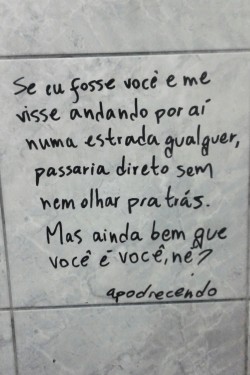 Se eu fosse você e me
visse andando por aí
numa estrada qualquer,
passaria direto sem
nem olhar pra trás.
Mas ainda bem que
você é você, né?
apodrecendo